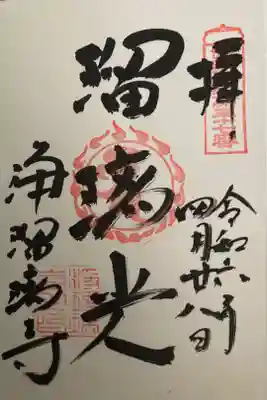 拝
令和六年
四月廿八日
瑠璃光
浄瑠璃寺